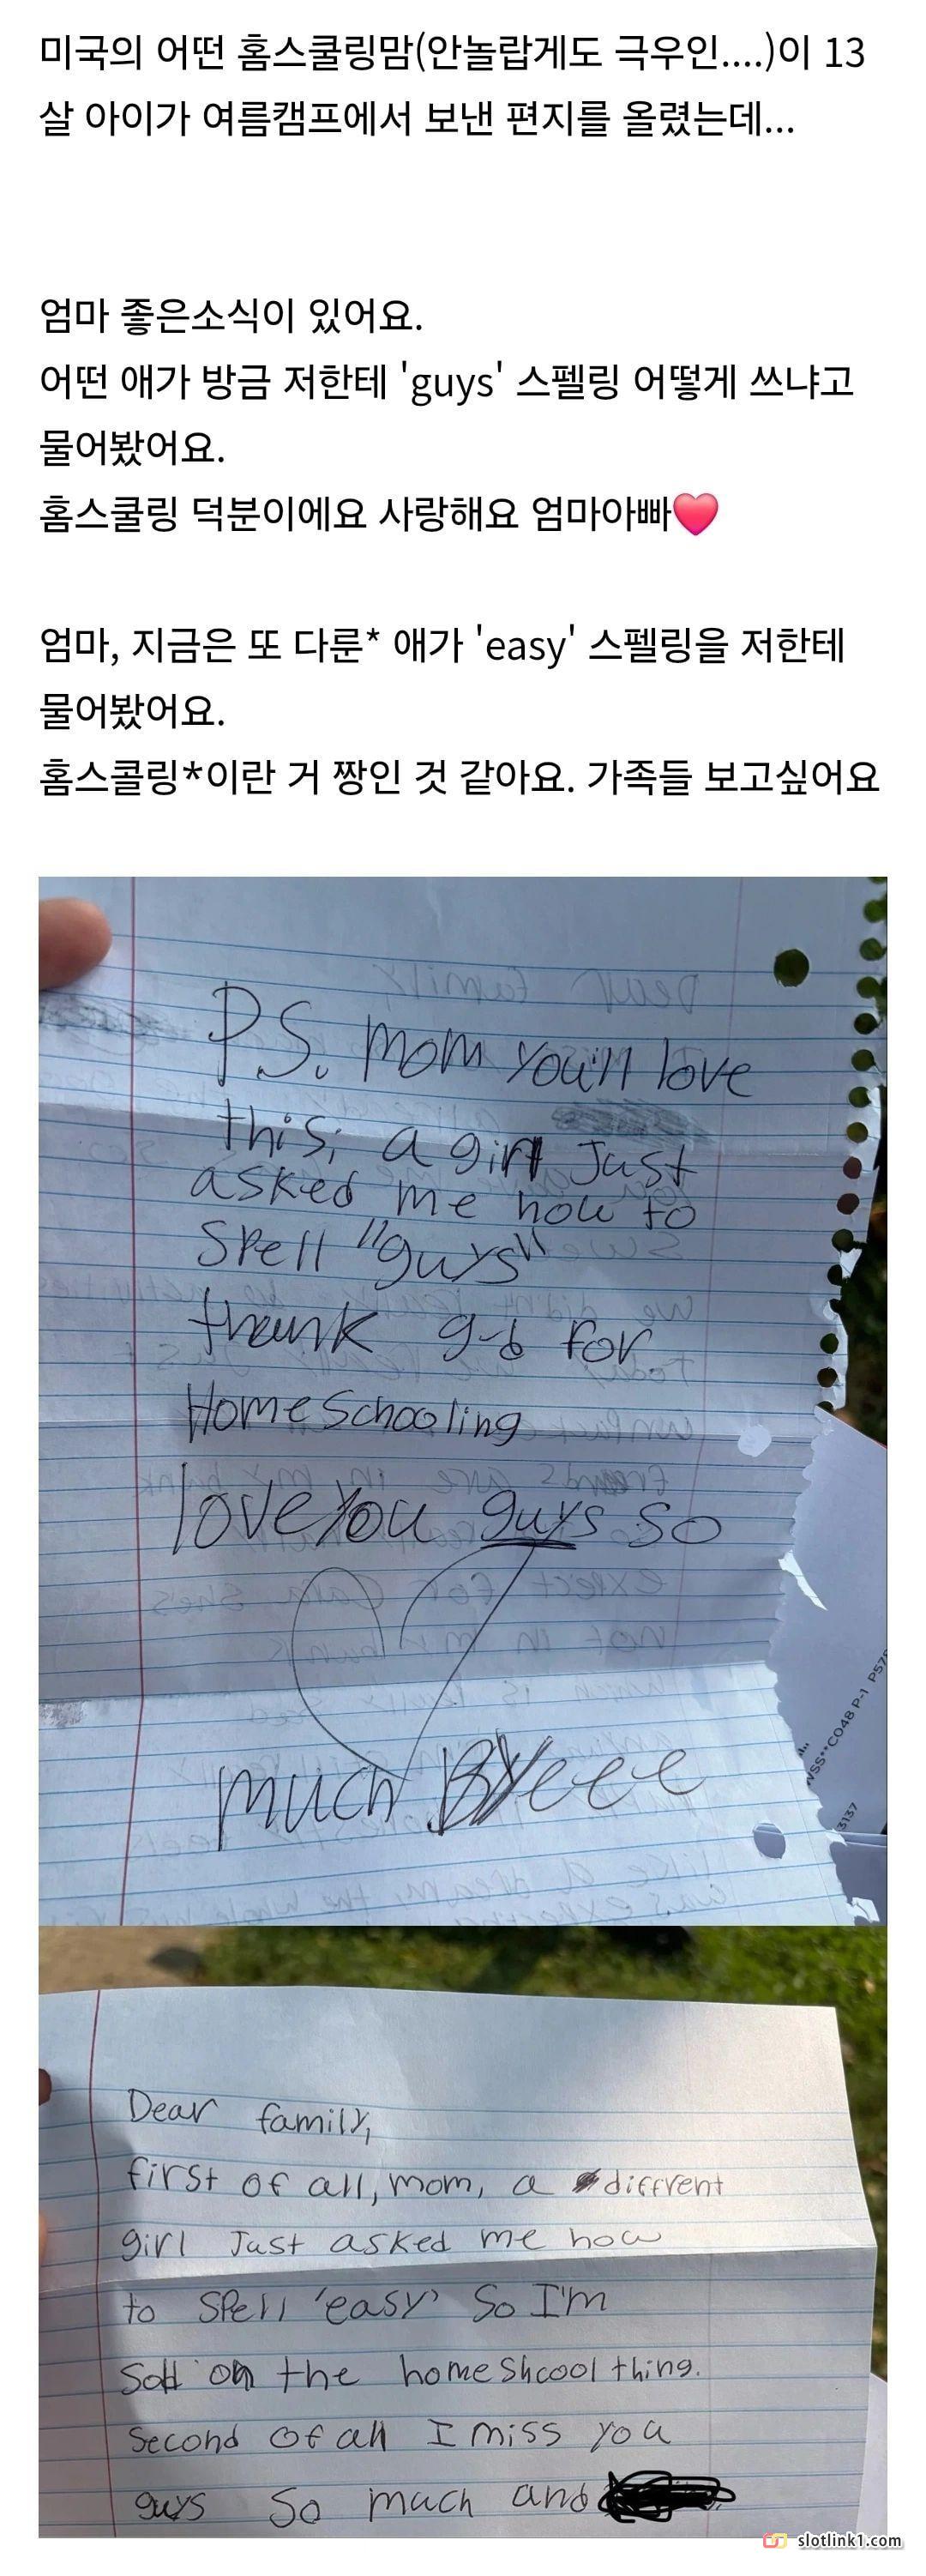 미국의 어떤 홈스쿨링맘(안놀랍게도 극우인....)이 13
살 아이가 여름캠프에서 보낸 편지를 올렸는데...
엄마 좋은소식이 있어요.
어떤 애가 방금 저한테 'guys' 스펠링 어떻게 쓰냐고
물어봤어요.
홈스쿨링 덕분이에요 사랑해요 엄마아빠❤️
엄마, 지금은 또 다룬* 애가 'easy' 스펠링을 저한테
물어봤어요.
홈스콜링*이란 거 짱인 것 같아요. 가족들 보고싶어요
P.S. mom you'll love
this; a girl Just
asked me how to
Spell "guys"
thank g-d for
HomeSchooling
love you guys so
much BYeee
VSS**C048 P-1
3137
Dear family,
first of all, mom, a diffrent
girl Just asked me how
to Spell 'easy' So I'm
Sold on the homeshcool thing.
Second of all I miss you
guys So much and
slotlink1.com